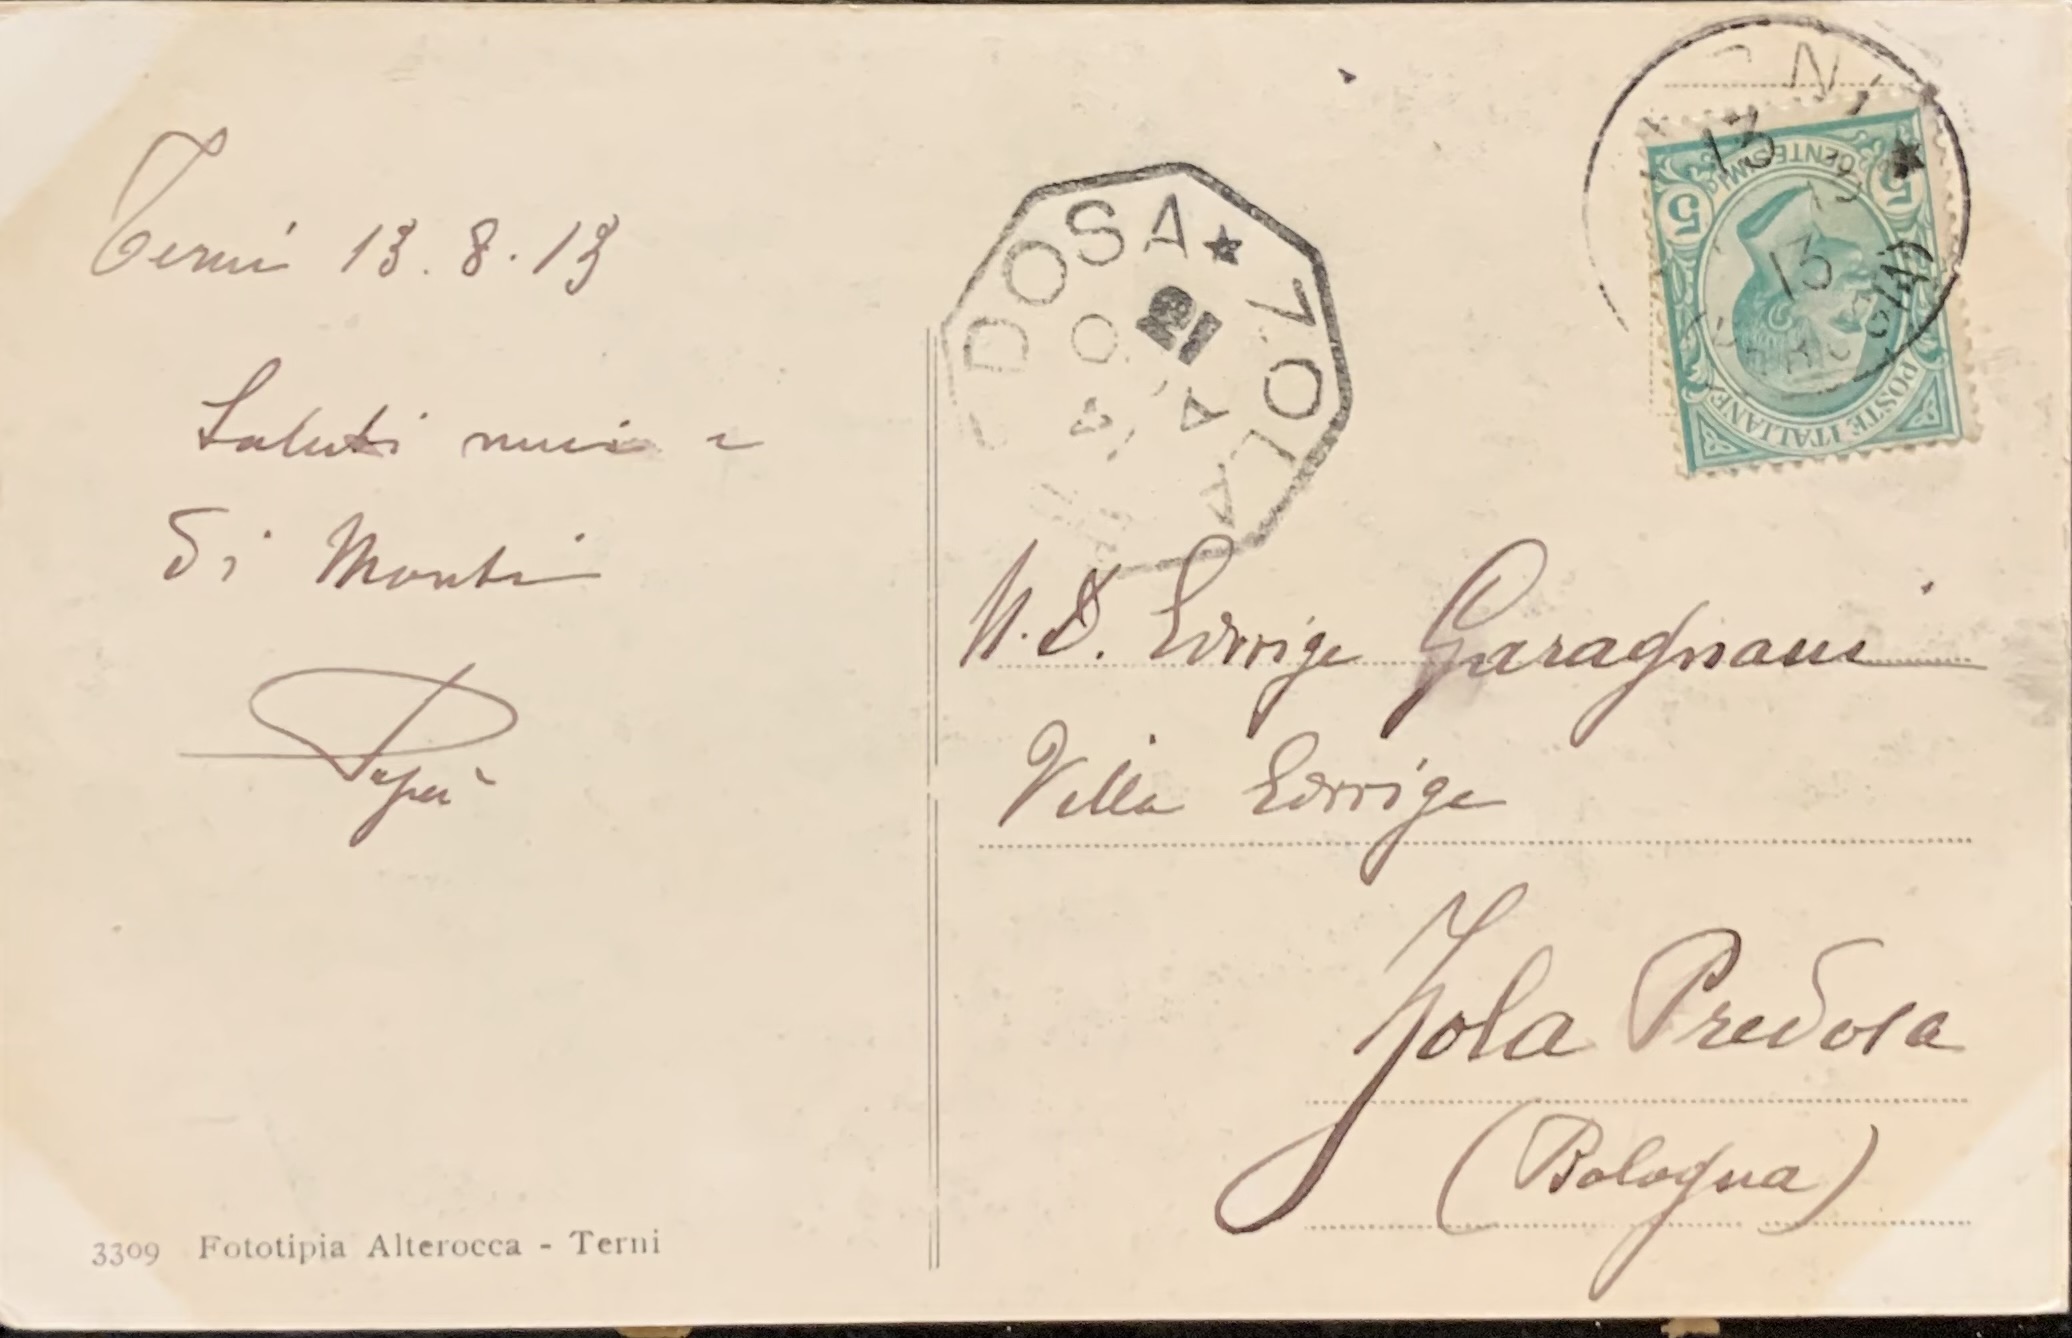 Terni 13.8.13
Saluti miei e
di Monti
Papà
3309 Fototipia Alterocca - Terni
DOSA * ZOLA
13
13
5 CENTESIMI 5
POSTE ITALIANE
N. D. Edvige Garagnani
Villa Edvige
Zola Predosa
(Bologna)